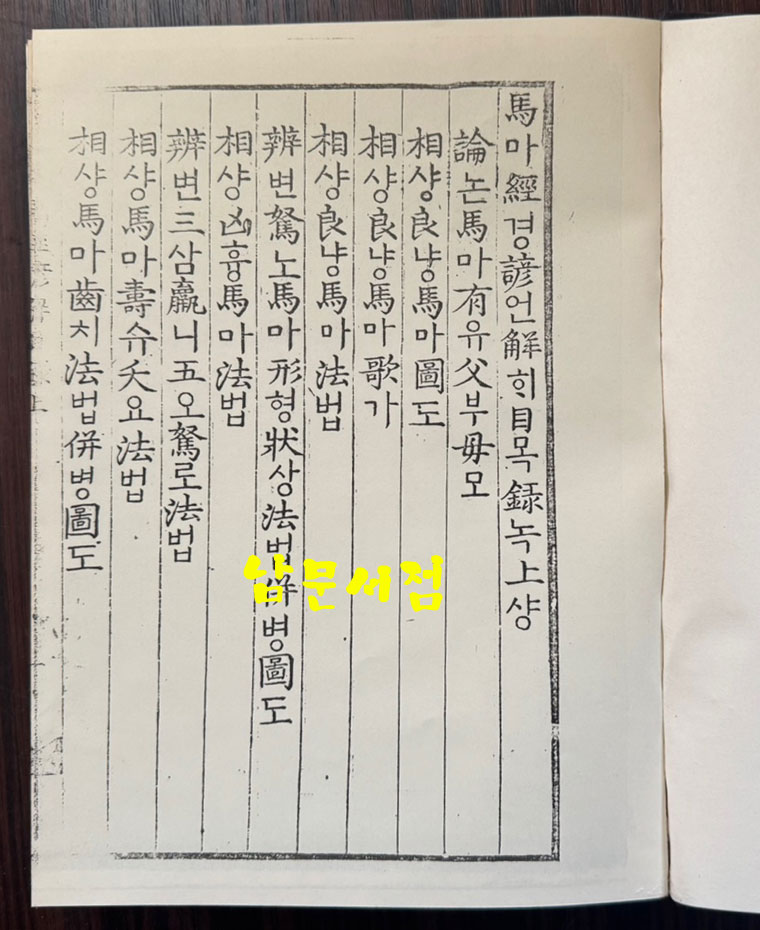 馬마經경諺언解ᄒᆡ目목錄녹上샹
論논馬마有유父부毋모
相샹良냥馬마圖도
相샹良냥馬마歌가
相샹良냥馬마法법
辨변駑노馬마形형狀상法법併병圖도
相샹凶흉馬마法법
辨변三삼羸니五오駑로法법
相샹馬마壽슈夭요法법
相샹馬마齒치法법併병圖도
남문서점